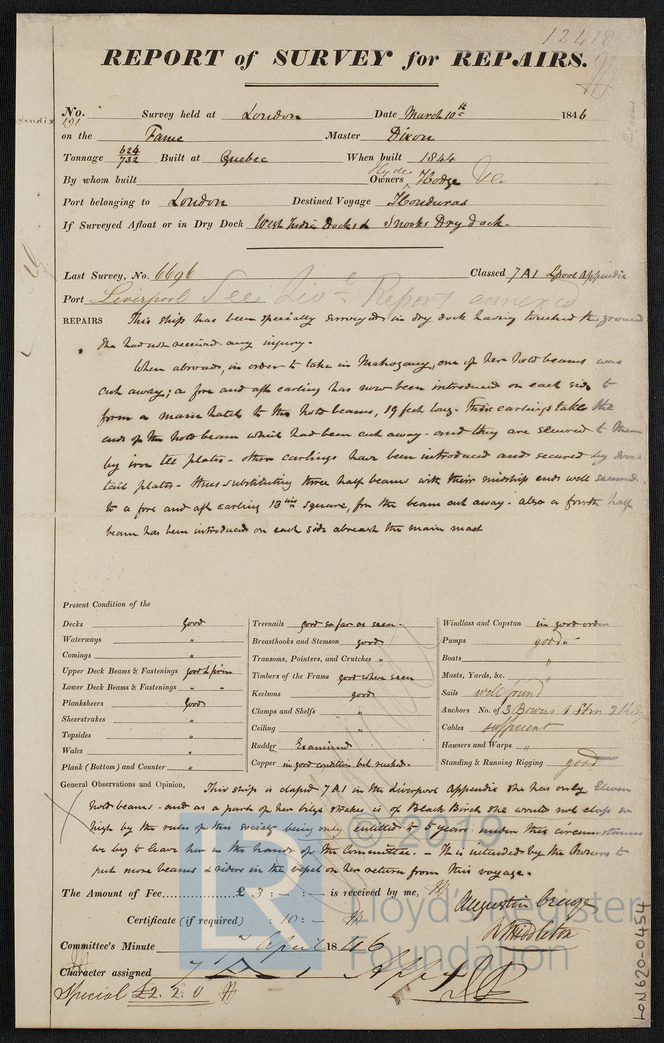 12418
REPORT of SURVEY for REPAIRS.
No. 191 Survey held at London Date March 10th 1846
on the Fame Master Dixon
Tonnage 624/732 Built at Quebec When built 1844
By whom built Owners Hyde Hodge &c.
Port belonging to London Destined Voyage Honduras
If Surveyed Afloat or in Dry Dock West India Docks & Snooks Dry dock.
Last Survey, No. 6696 Classed 7 A1 Lpool Appendix
Port Liverpool See Liv. Report annexed
REPAIRS This ship has been specially surveyed in dry dock having touched the ground
She had not received any injury.
When abroad, in order to take in Mahogany, one of her hold beams was
cut away; a fore and aft carling has now been introduced on each side to
form a main hatch to the hold beams, 19 feet long. These carlings take the
ends of the hold beam which had been cut away - and they are secured to them
by iron tee plates - other carlings have been introduced and secured by dove
tail plates - thus substituting three half beams with their midship ends well secured
to a fore and aft carling 13 ins square, for the beam cut away - also a fourth half
beam has been introduced on each side abreast the main mast
Present Condition of the
Decks good
Waterways "
Comings "
Upper Deck Beams & Fastenings good & firm
Lower Deck Beams & Fastenings " "
Planksheers good
Sheerstrakes "
Topsides "
Wales "
Plank (Bottom) and Counter "
Treenails good so far as seen
Breasthooks and Stemson good
Transoms, Pointers, and Crutches "
Timbers of the Frame good where seen
Keelsons good
Clamps and Shelfs "
Ceiling "
Rudder Examined
Copper in good condition but
Windlass and Capstan in good order
Pumps good
Boats "
Masts, Yards, &c. "
Sails well found
Anchors No. of 3 Bowers 1 Strm 2 Kedg
Cables sufficient
Hawsers and Warps "
Standing & Running Rigging good
General Observations and Opinion, This ship is classed 7 A1 in the Liverpool Appendix she has only Eleven
hold beams - and as a part of her bilge strakes is of Black Birch she would not class so
high by the rules of this society being only entitled to 5 years. under this circumstances
we beg to leave her in the hands of the Committee. - It is intended by the Owners to
put more beams & riders in the vessel on her return from this voyage.
The Amount of Fee £ 3 : - : - is received by me,
Certificate (if required) " : 10 : -
Augustin Creuze
Middleton
Committee's Minute April 1846
Character assigned 7 A 1
Special £2.2.0
LON620-0454
© 2019
LR
Lloyd's Register
Foundation